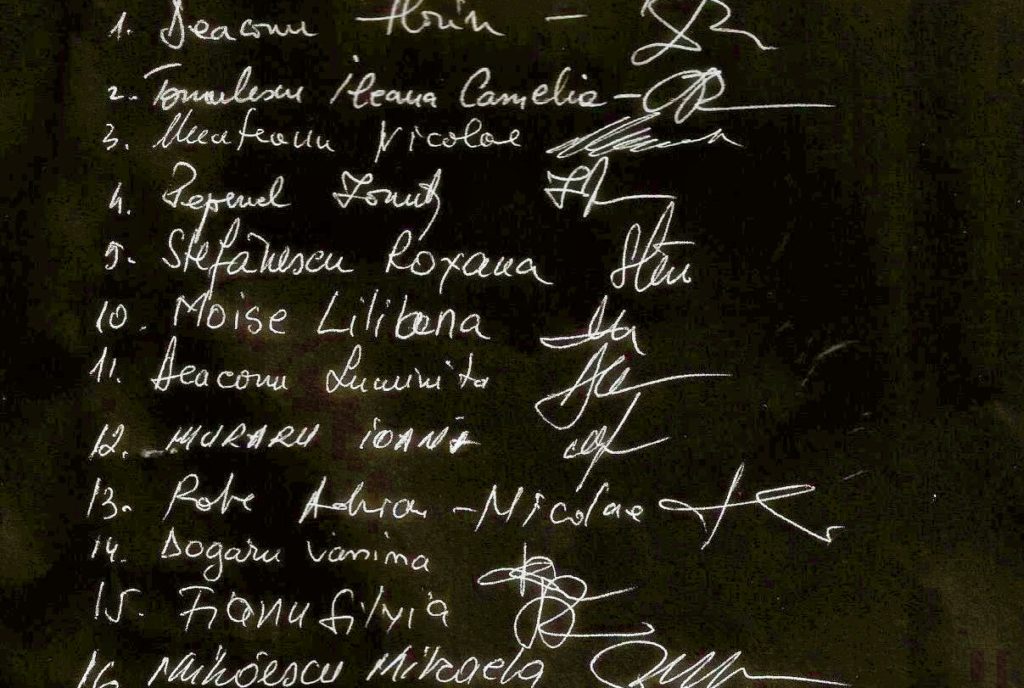 1. Deaconu Florin -
2. Tomulescu Ileana Camelia -
3. Munteanu Nicolae
4. Ionuț
5. Stefănescu Roxana
10. Moise Lilibana
11. Deaconu Luminita
12. MURARU IOANA
13. Robe Adrian - Nicolae
14. Dogaru Vanima
15. Fianu Silvia
16. Mihăescu Mihaela